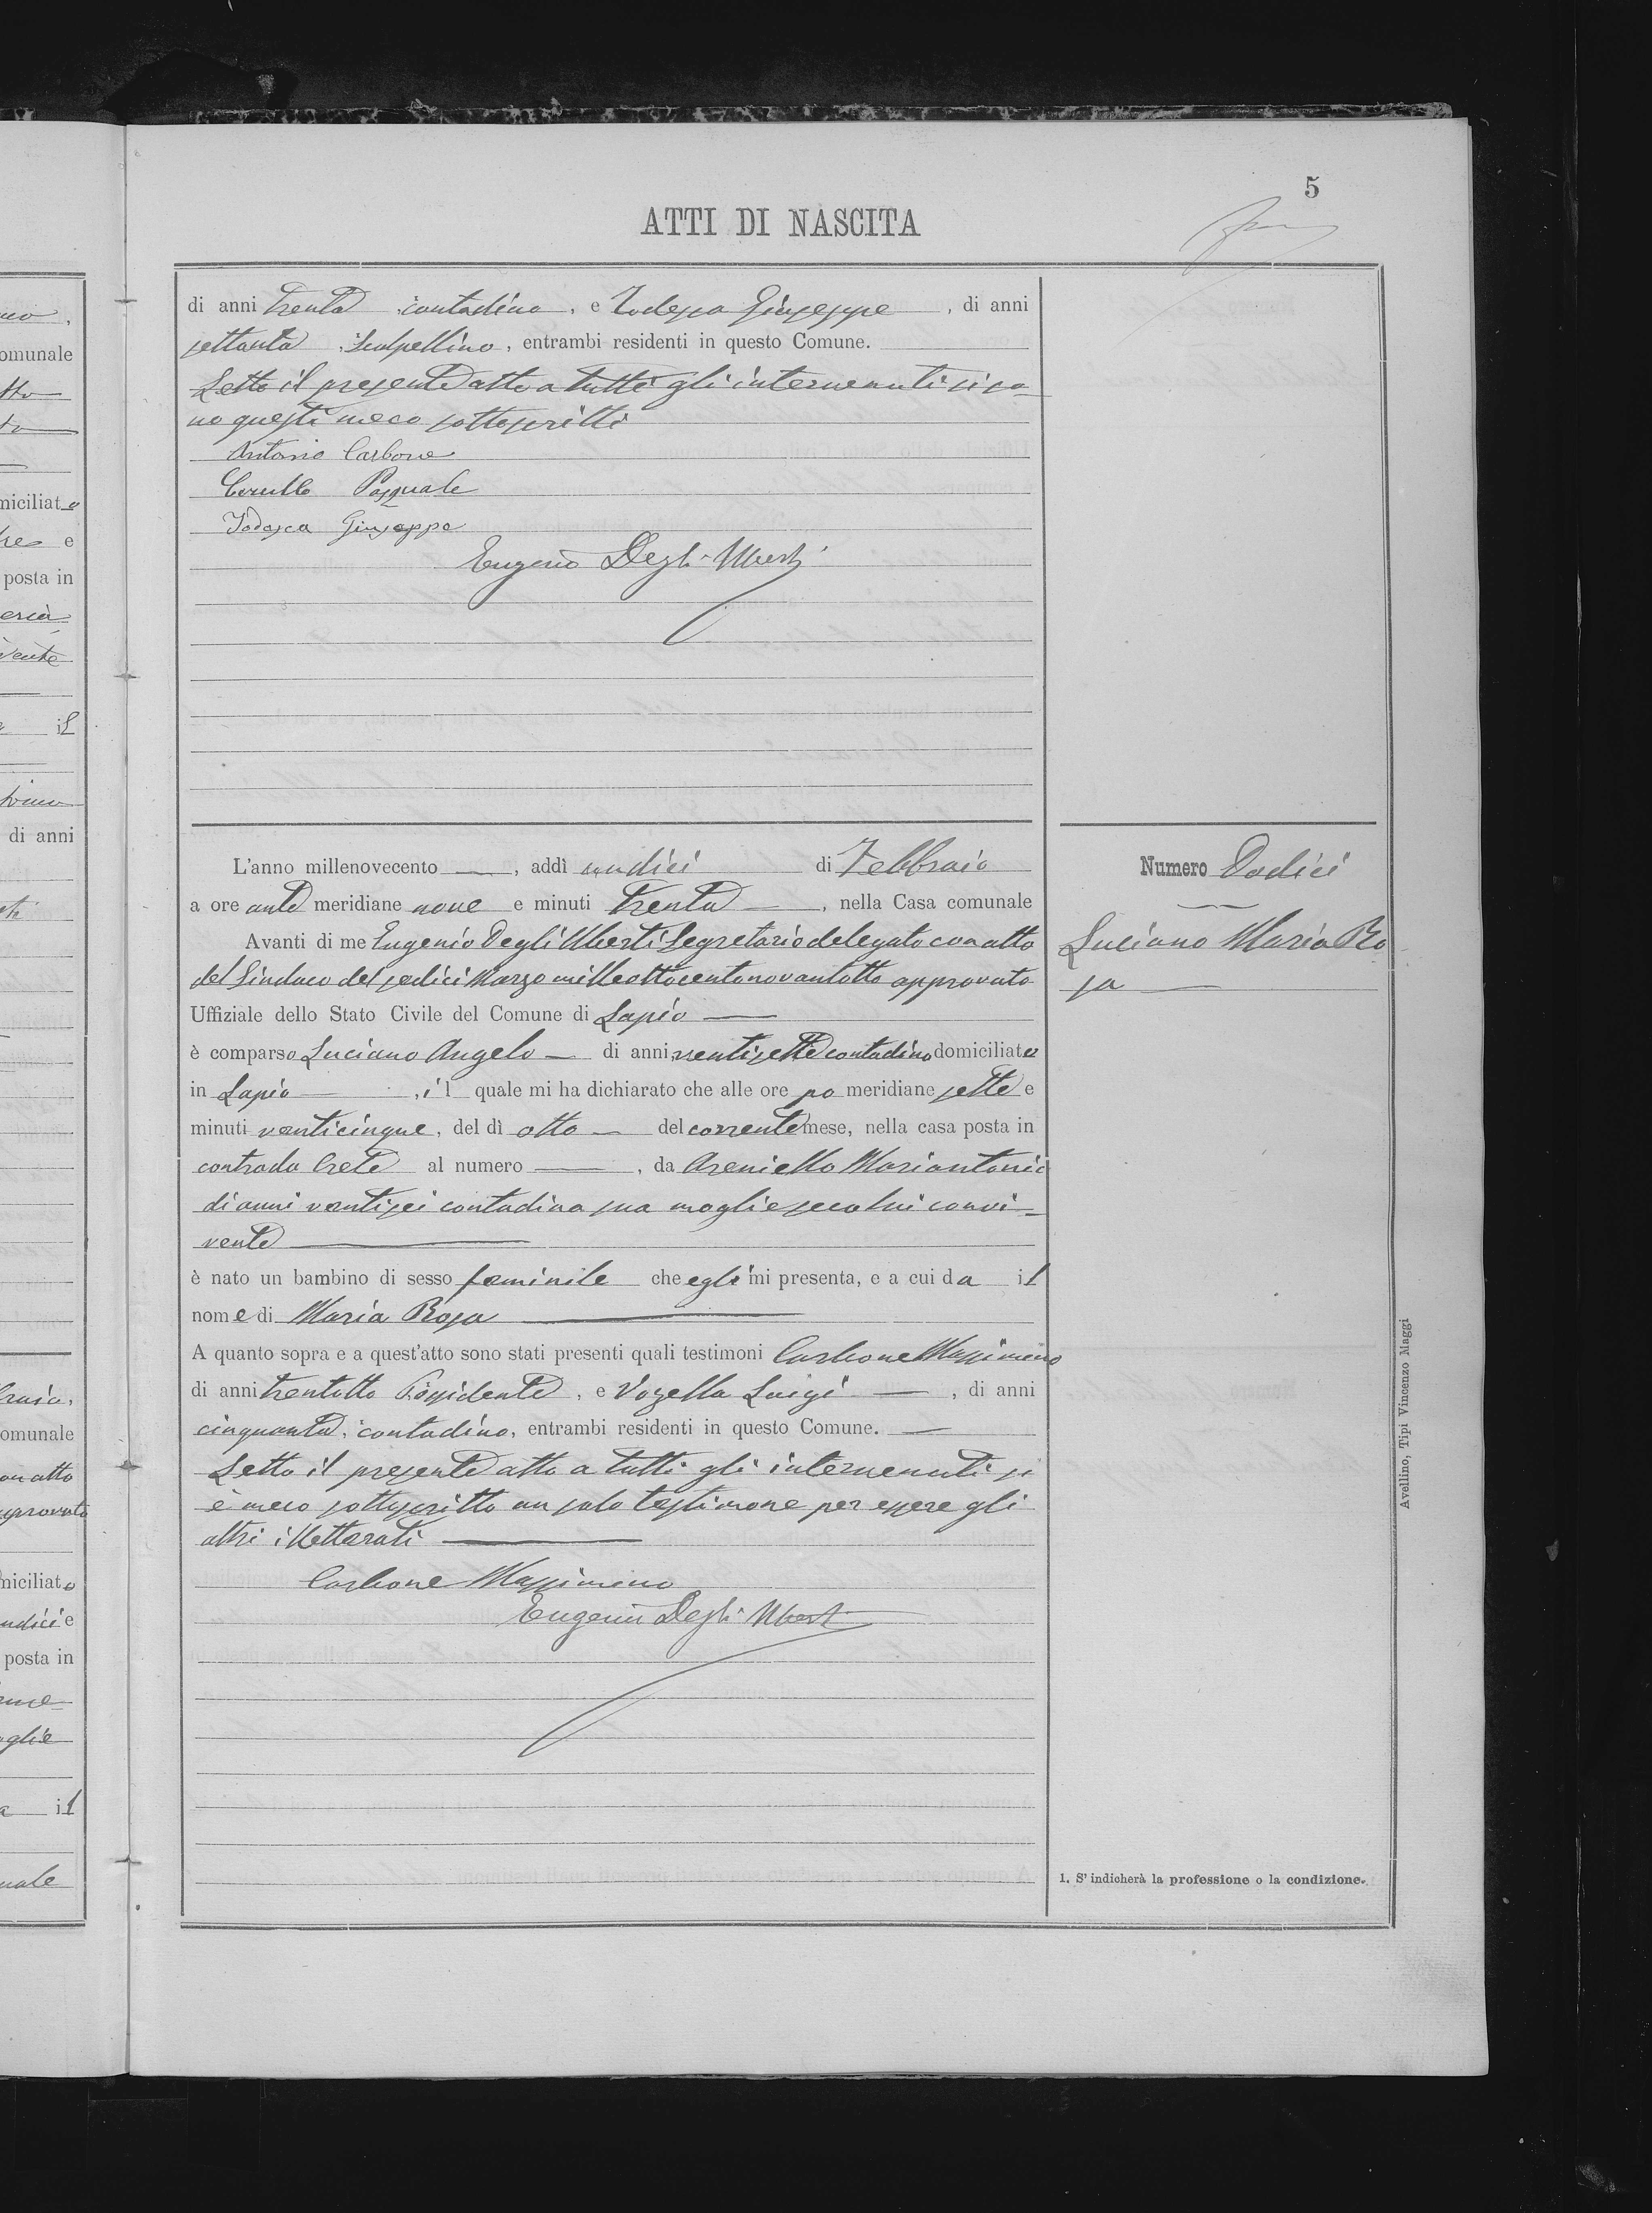 5
ATTI DI NASCITA
uo,
omunale
tto
miciliato
tre e
posta in
vente
il
di anni
raio,
omunale
on atto
pprovato
miciliato
undici e
posta in
oglie
il
uale
di anni trenta, contadino, e Todesca Giuseppe, di anni
settanta, Scalpellino, entrambi residenti in questo Comune.
Letto il presente atto a tutti gli intervenuti si so-
no questi meco sottoscritti
Antonio Carbone
Cerullo Pasquale
Todesca Giuseppe
Eugenio Degli Uberti
L'anno millenovecento —, addì undici di Febbraio
a ore ante meridiane nove e minuti trenta —, nella Casa comunale
Avanti di me Eugenio Degli Uberti Segretario delegato con atto
del Sindaco del sedici Marzo milleottocentonovantotto approvato
Uffiziale dello Stato Civile del Comune di Lapio —
è comparso Luciano Angelo — di anni ventisette contadino domiciliato
in Lapio —, il quale mi ha dichiarato che alle ore po meridiane sette e
minuti venticinque, del dì otto — del corrente mese, nella casa posta in
contrada Crete al numero —, da Areniello Mariantonia
di anni ventisei contadina sua moglie seco lui convi-
vente —
è nato un bambino di sesso feminile che egli mi presenta, e a cui da il
nome di Maria Rosa —
A quanto sopra e a quest'atto sono stati presenti quali testimoni Carbone Massimino
di anni trentotto Possidente, e Vozella Luigi —, di anni
cinquanta, contadino, entrambi residenti in questo Comune. —
Letto il presente atto a tutti gli intervenuti si
è meco sottoscritto un solo testimone per essere gli
altri illetterati —
Carbone Massimino
Eugenio Degli Uberti
Numero Dodici
Luciano Maria Ro
sa —
1. S'indicherà la professione o la condizione.
Avellino, Tipi Vincenzo Maggi